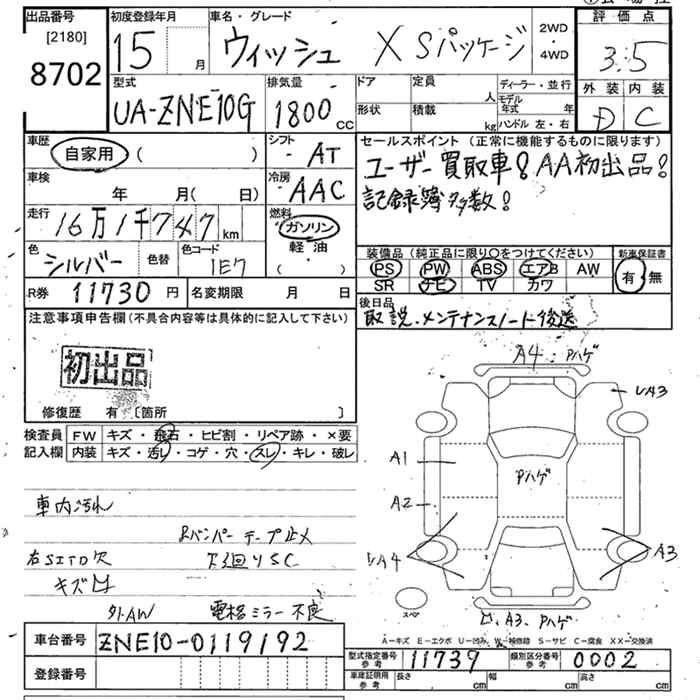 出品番号
[2180]
8702
初度登録年月
15 月
車名・グレード
ウィッシュ X Sパッケージ
2WD
・
4WD
評価点
3.5
外装 内装
D C
型式
UA-ZNE10G
排気量
1800 cc
ドア
形状
定員 人
積載 kg
ディーラー・並行
モデル年式 年
ハンドル 左・右
車歴
自家用 ( )
シフト
AT
車検
年 月( 日)
冷房
AAC
走行
16万1千747 km
燃料
ガソリン
軽油
( ・ )
色
シルバー
色替
色コード
1E7
R券 11730 円
名変期限 月 日
セールスポイント (正常に機能するものに限ります)
ユーザー買取車!AA初出品!
記録簿多数!
装備品 (純正品に限り○をつけてください)
新車保証書
PS PW ABS エアB AW
SR ナビ TV カワ
有・無
後日品
取説・メンテナンスノート後送
注意事項申告欄 (不具合内容等は具体的に記入して下さい)
初出品
修復歴 有 〔箇所 〕
検査員記入欄
FW キズ・飛石・ヒビ割・リペア跡・×要
内装 キズ・汚レ・コゲ・穴・スレ・キレ・破レ
車内汚れ
Rバンパー テープ止メ
右SITD欠
下廻りSC
キズ凹
外AW
電格ミラー不良
A4・Pハゲ
A3
A1
Pハゲ
A2
A4
A3
スペア
凹、A3、Pハゲ
A－キズ E－エクボ U－凹み W－補修跡 S－サビ C－腐食 XX－交換済
車台番号 ZNE10-0119192
登録番号
型式指定番号 参考 11739
類別区分番号 参考 0002
車庫証明用 参考
長さ cm
幅 cm
高さ cm